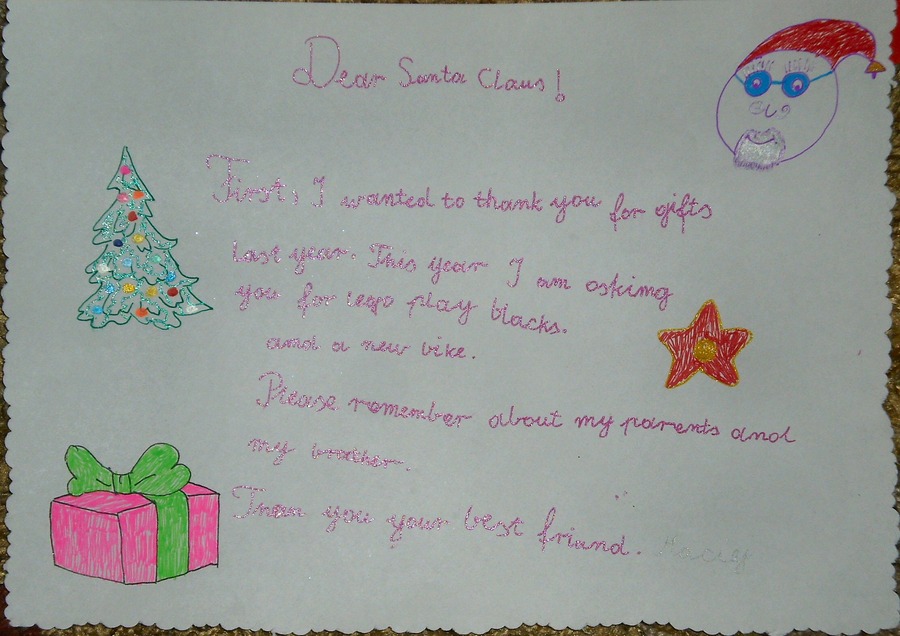 Dear Santa Claus!
First, I wanted to thank you for gifts
last year. This year I am asking
you for lego play blacks.
and a new bike.
Please remember about my parents and
my brother.
you your best friund.